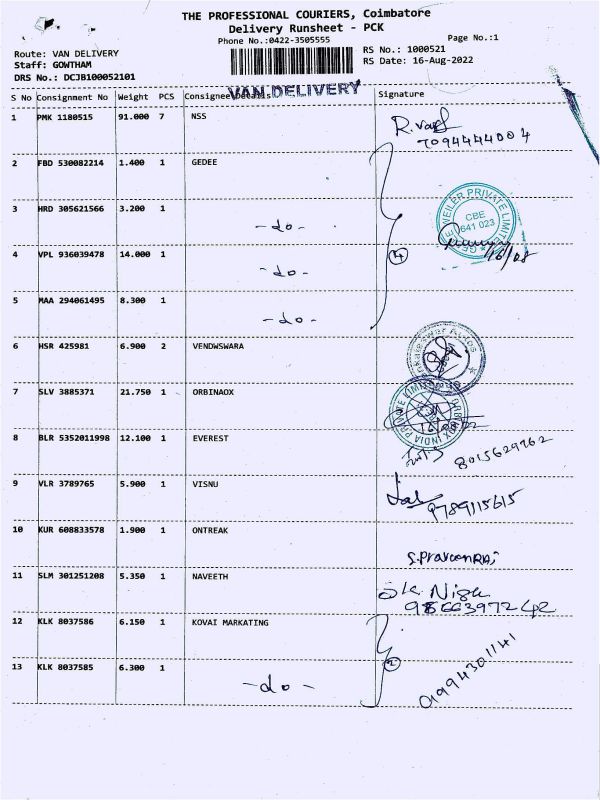 THE PROFESSIONAL COURIERS, Coimbatore
Delivery Runsheet - PCK
Phone No.:0422-3505555
Page No.:1
Route: VAN DELIVERY
RS No.: 1000521
Staff: GOWTHAM
RS Date: 16-Aug-2022
DRS No.: DCJB100052101
VAN DELIVERY
S No Consignment No Weight PCS Consignee Details Signature
1 PMK 1180515 91.000 7 NSS
7094444004
2 FBD 530082214 1.400 1 GEDEE
3 HRD 305621566 3.200 1 -do-
CBE
641 023
16/08
4 VPL 936039478 14.000 1 -do-
4
5 MAA 294061495 8.300 1 -do-
6 HSR 425981 6.900 2 VENDWSWARA
7 SLV 3885371 21.750 1 ORBINAOX
8 BLR 5352011998 12.100 1 EVEREST
8015629762
9 VLR 3789765 5.900 1 VISNU
9789115615
10 KUR 608833578 1.900 1 ONTREAK
11 SLM 301251208 5.350 1 NAVEETH
12 KLK 8037586 6.150 1 KOVAI MARKATING
2
13 KLK 8037585 6.300 1 -do-